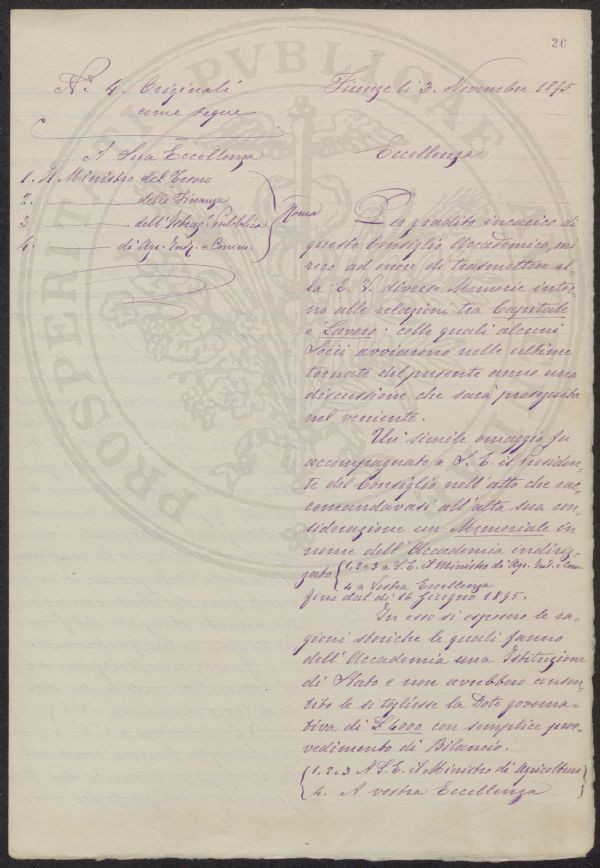 26
N.° 4 Originali
come segue
A Sua Eccellenza
1. Il Ministro del Tesoro
2. ——— delle Finanze
3 ——— dell'Istruz. Pubblica
4. ——— di Agr. Ind. e Comm.
Roma
Firenze li 3. Novembre 1895
Eccellenza
Per gradito incarico di
questo Consiglio Accademico, mi
reco ad onore di trasmettere al-
la E. V. diverse Memorie intor-
no alle relazioni tra Capitale
e Lavoro; colle quali alcuni
Socii avviarono nelle ultime
tornate del presente anno una
discussione che sarà proseguita
nel veniente.
Un simile omaggio fu
accompagnato a S. E. il Presiden-
te del Consiglio nell'atto che rac-
comandavasi all'alta sua con-
siderazione un Memoriale in
nome dell'Accademia indiriz-
zato {1, 2 e 3 a S. E. il Ministro di Agr. Ind. e Com.
4 a Vostra Eccellenza
fino dal dì 16 Giugno 1895.
In esso si esposero le ra-
gioni storiche le quali fanno
dell'Accademia una Istituzione
di Stato e non avrebbero consen-
tito le si togliesse la Dote governa-
tiva di £ 4000 con semplice prov-
vedimento di Bilancio.
{1, 2 e 3 A S. E. il Ministro di Agricoltura}
{4. A vostra Eccellenza}
PROSPERITATI PVBLICAE